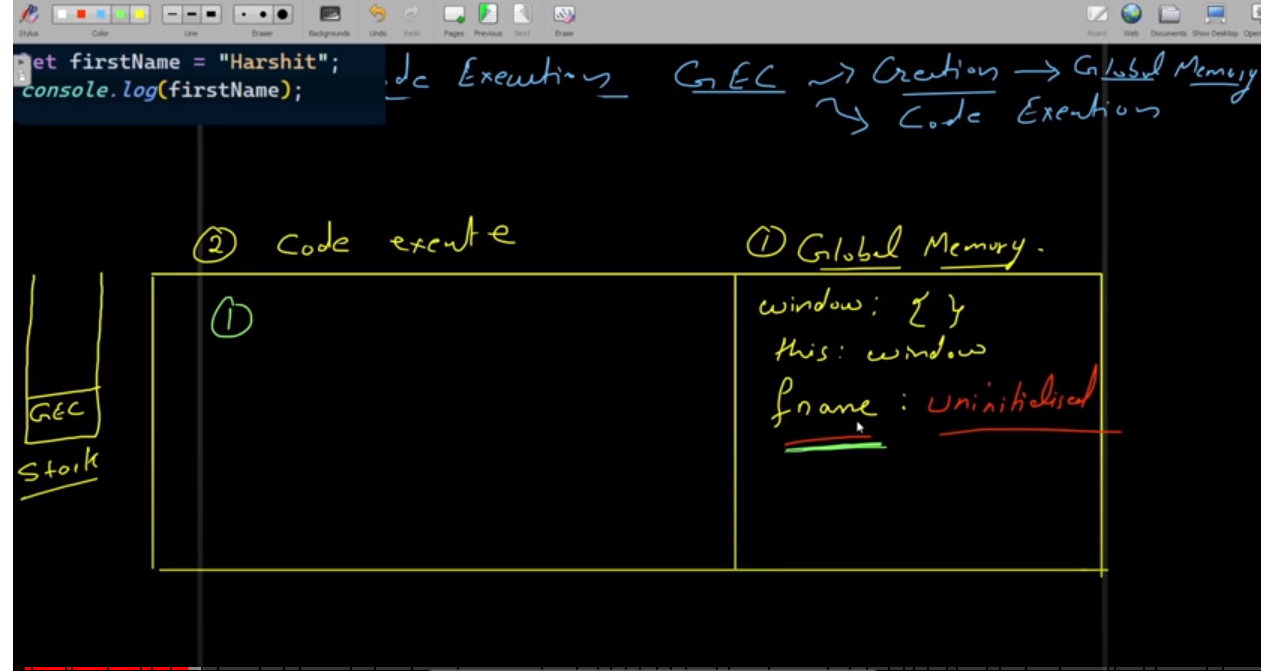 Stylus Color Line Eraser Backgrounds Undo Redo Pages Previous Next Erase Board Web Documents Show Desktop
let firstName = "Harshit";
console.log(firstName);
de Execution GEC → Creation → Global Memory
Code Execution
② Code execute ① Global Memory.
①
window: { }
this: window
fname : uninitialised
GEC
Stack